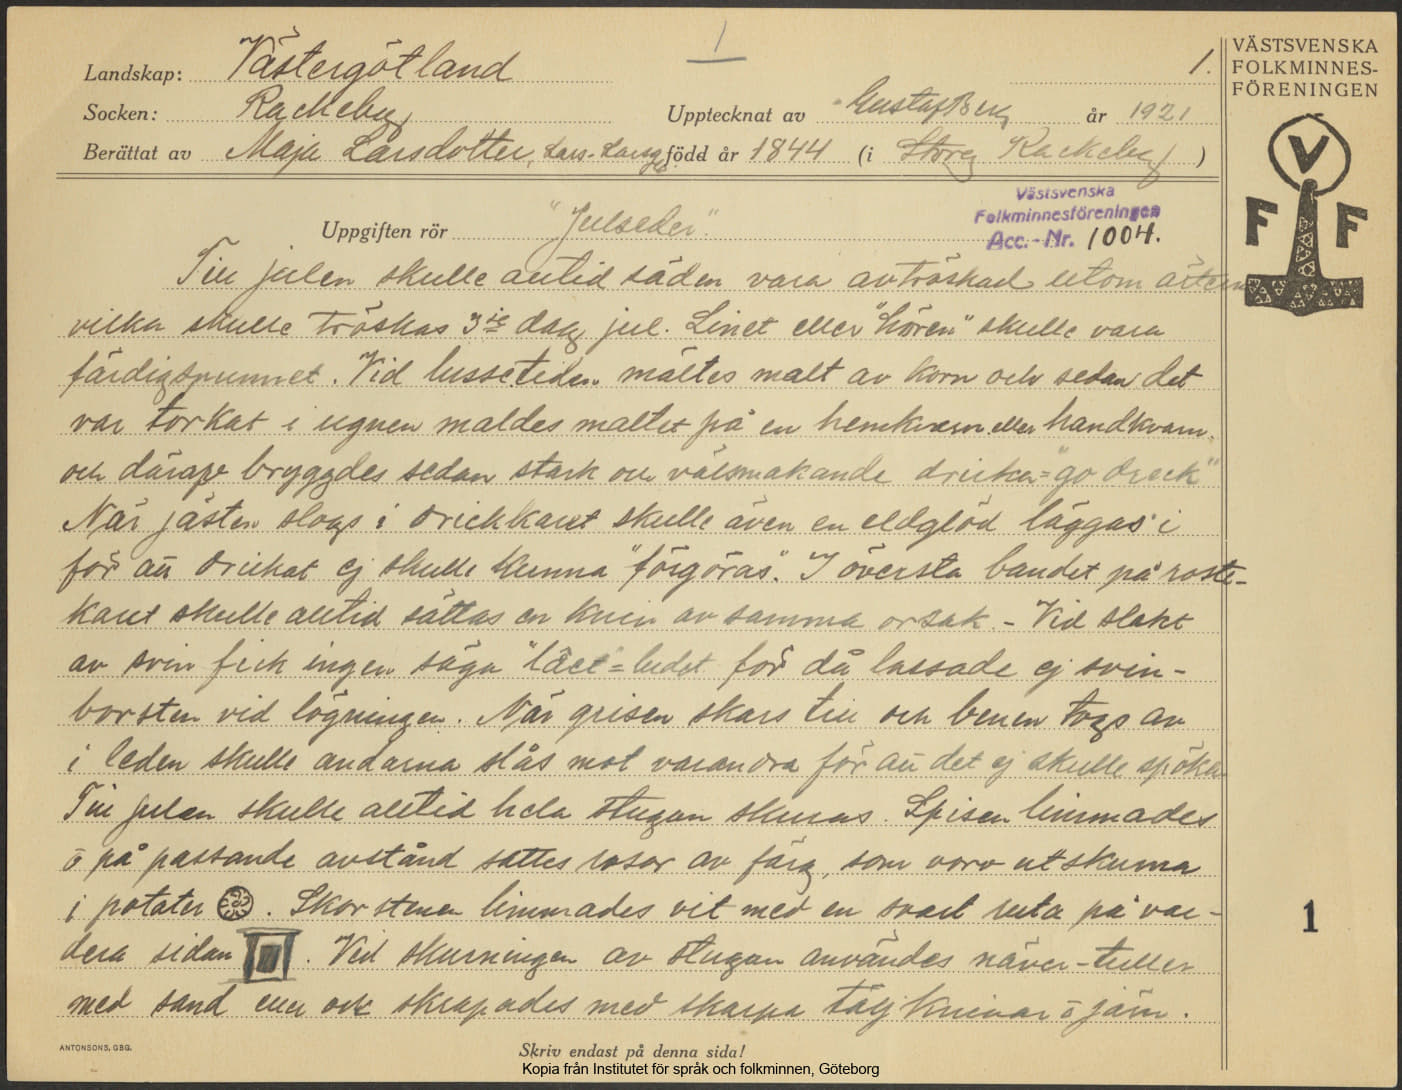 1
1.
VÄSTSVENSKA
FOLKMINNES-
FÖRENINGEN
Landskap: Västergötland
Socken: Rackeby Upptecknat av Gustaf Berg år 1921
Berättat av Maja Larsdotter, född år 1844 (i Rackeby)
V
F F
Västsvenska
Folkminnesföreningen
Acc.-Nr. 1004.
Uppgiften rör "Julseder".
Till julen skulle alltid säden vara avtröskad utom ärterna
vilka skulle tröskas 3je dag jul. Linet eller "hören" skulle vara
färdigspunnet. Vid lussetiden mältes malt av korn och sedan det
var torkat i ugnen maldes maltet på en hemkvarn eller handkvarn.
och därav bryggdes sedan stark och välsmakande dricka="go dreck"
När jästen slogs i drickkaret skulle även en eldglöd läggas i
för att drickat ej skulle kunna "förgöras". I översta bandet på roste-
karet skulle alltid sättas en kniv av samma orsak. - Vid slakt
av svin fick ingen säga = ledet för då lossade ej svin-
borsten vid lögningen. När grisen skars till och benen togs av
i leden skulle ändarna slås mot varandra för att det ej skulle spöka
Till julen skulle alltid hela stugan skuras. Spisen limmades
o på passande avstånd sattes rosor av färg, som voro utskurna
i potatis . Skorstenen limmades vit med en svart ruta på var-
dera sidan . Vid skurningen av stugan användes näver-tuller
med sand eller ock skrapades med skarpa täljknivar o järn.
1
ANTONSONS, GBG.
Skriv endast på denna sida!
Kopia från Institutet för språk och folkminnen, Göteborg